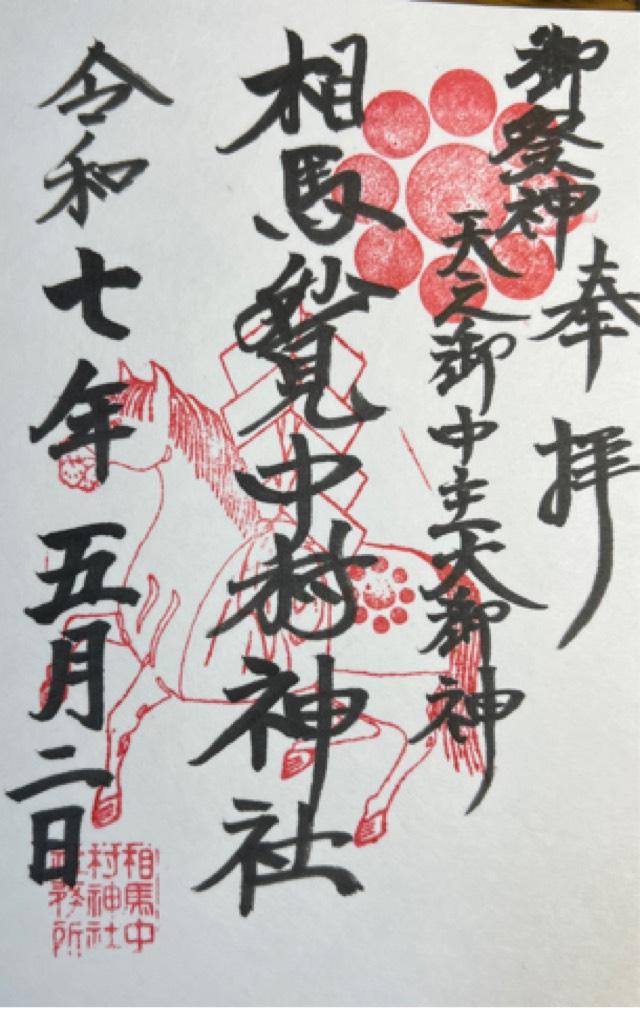 奉拝
御祭神
天之御中主大御神
相馬妙見中村神社
令和七年五月二日
相馬中
村神社
社務所